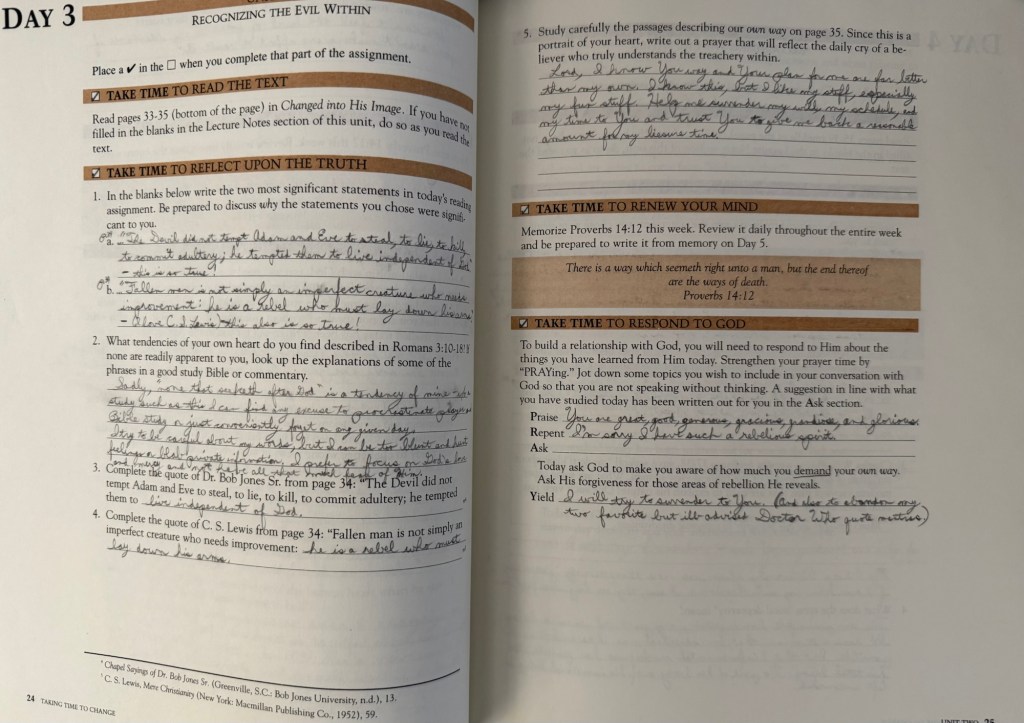 DAY 3
RECOGNIZING THE EVIL WITHIN
Place a ✔ in the ☐ when you complete that part of the assignment.
☑ TAKE TIME TO READ THE TEXT
Read pages 33-35 (bottom of the page) in Changed into His Image. If you have not
filled in the blanks in the Lecture Notes section of this unit, do so as you read the
text.
☑ TAKE TIME TO REFLECT UPON THE TRUTH
1. In the blanks below write the two most significant statements in today's reading
assignment. Be prepared to discuss why the statements you chose were signifi-
cant to you.
a. "The Devil did not tempt Adam and Eve to steal, to lie, to kill,
to commit adultery; he tempted them to live independent of God"
- this is so true!
b. "Fallen man is not simply an imperfect creature who needs
improvement: he is a rebel who must lay down his arms"
- I love C.S. Lewis, this also is so true!
2. What tendencies of your own heart do you find described in Romans 3:10-18? If
none are readily apparent to you, look up the explanations of some of the
phrases in a good study Bible or commentary.
Sadly, "none that seeketh after God" is a tendency of mine
study such as this I can find any excuse to procrastinate
Bible study or just conveniently forget on any given day.
I try to be careful about my words, but I can be too blunt and hurt
feelings or blab private information. I prefer to focus on God's love
and mercy and not
3. Complete the quote of Dr. Bob Jones Sr. from page 34: "The Devil did not
tempt Adam and Eve to steal, to lie, to kill, to commit adultery; he tempted
them to live independent of God."
4. Complete the quote of C. S. Lewis from page 34: "Fallen man is not simply an
imperfect creature who needs improvement: he is a rebel who must
lay down his arms."
⁴ Chapel Sayings of Dr. Bob Jones Sr. (Greenville, S.C.: Bob Jones University, n.d.), 13.
⁵ C. S. Lewis, Mere Christianity (New York: Macmillan Publishing Co., 1952), 59.
24 TAKING TIME TO CHANGE
5. Study carefully the passages describing our own way on page 35. Since this is a
portrait of your heart, write out a prayer that will reflect the daily cry of a be-
liever who truly understands the treachery within.
Lord, I know Your way and Your plan for me are far better
than my own. I know this, but I like my stuff, especially
my fun stuff. Help me surrender my will, my schedule, and
my time to You and trust You to give me back a reasonable
amount for my leisure time.
☑ TAKE TIME TO RENEW YOUR MIND
Memorize Proverbs 14:12 this week. Review it daily throughout the entire week
and be prepared to write it from memory on Day 5.
There is a way which seemeth right unto a man, but the end thereof
are the ways of death.
Proverbs 14:12
☑ TAKE TIME TO RESPOND TO GOD
To build a relationship with God, you will need to respond to Him about the
things you have learned from Him today. Strengthen your prayer time by
"PRAYing." Jot down some topics you wish to include in your conversation with
God so that you are not speaking without thinking. A suggestion in line with what
you have studied today has been written out for you in the Ask section.
Praise You are great, good, generous, gracious, grandiose, and glorious
Repent I'm sorry I have such a rebelious spirit.
Ask
Today ask God to make you aware of how much you demand your own way.
Ask His forgiveness for those areas of rebellion He reveals.
Yield I will try to surrender to You. (And also to abandon my
two favorite but ill-advised Doctor Who quote mottos)
UNIT TWO 25